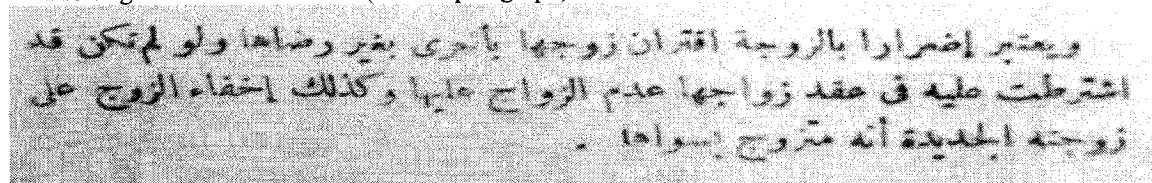 ويعتبر إضرارا بالزوجة اقتران زوجها بأخرى بغير رضاها ولو لم تكن قد
اشترطت عليه فى عقد زواجها عدم الزواج عليها وكذلك إخفاء الزوج على
زوجته الجديدة أنه متزوج بسواها .